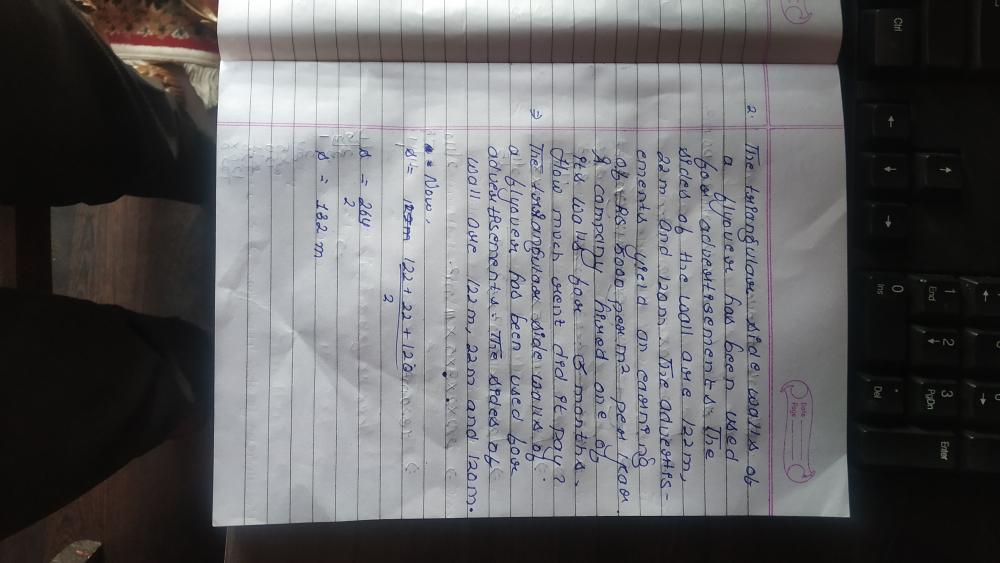 Date
Page
2. The triangular side walls of
a flyover has been used
for advertisements. The
sides of the wall are 122m,
22m and 120m. The advertis-
ements yield an earning
of Rs 5000 per m2 per year.
A company hired one of
its walls for 3 months.
How much rent did it pay?
⇒ The triangular side walls of
a flyover has been used for
advertisements. The sides of
wall are 122m, 22m and 120m.
Now,
s = 122 + 22 + 120
2
s = 264
2
s = 132 m
Ctrl
Enter
0
Ins
1
End
2
3
PgDn
.
Del